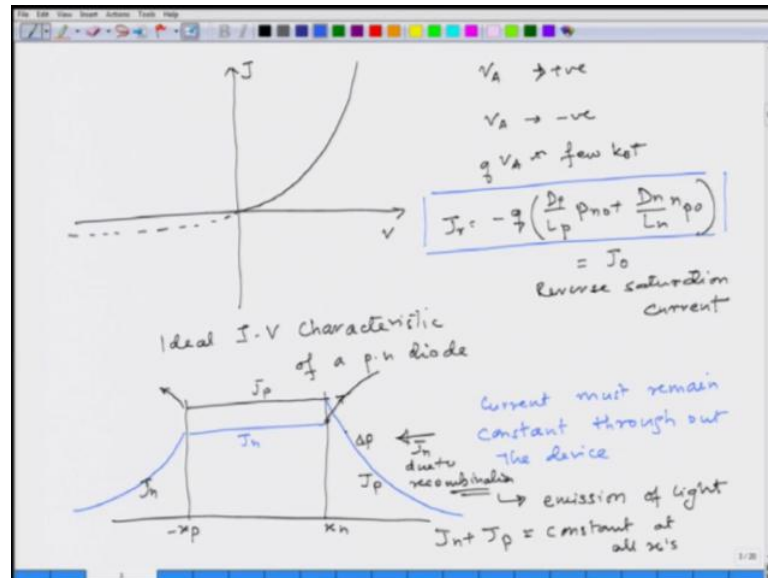 File Edit View Insert Actions Tools Help
J
V
V_A → +ve
V_A → -ve
q V_A ~ few k_BT
J_r = -q (D_p/L_p p_no + D_n/L_n n_po)
= J_0
Reverse saturation
current
Ideal I-V Characteristic
of a p.n diode
J_p
J_n
J_n
Δp
J_p
-x_p
x_n
J_n
due to
recombination
Current must remain
constant through out
the device
↳ emission of light
J_n + J_p = constant at
all x's
3 / 20